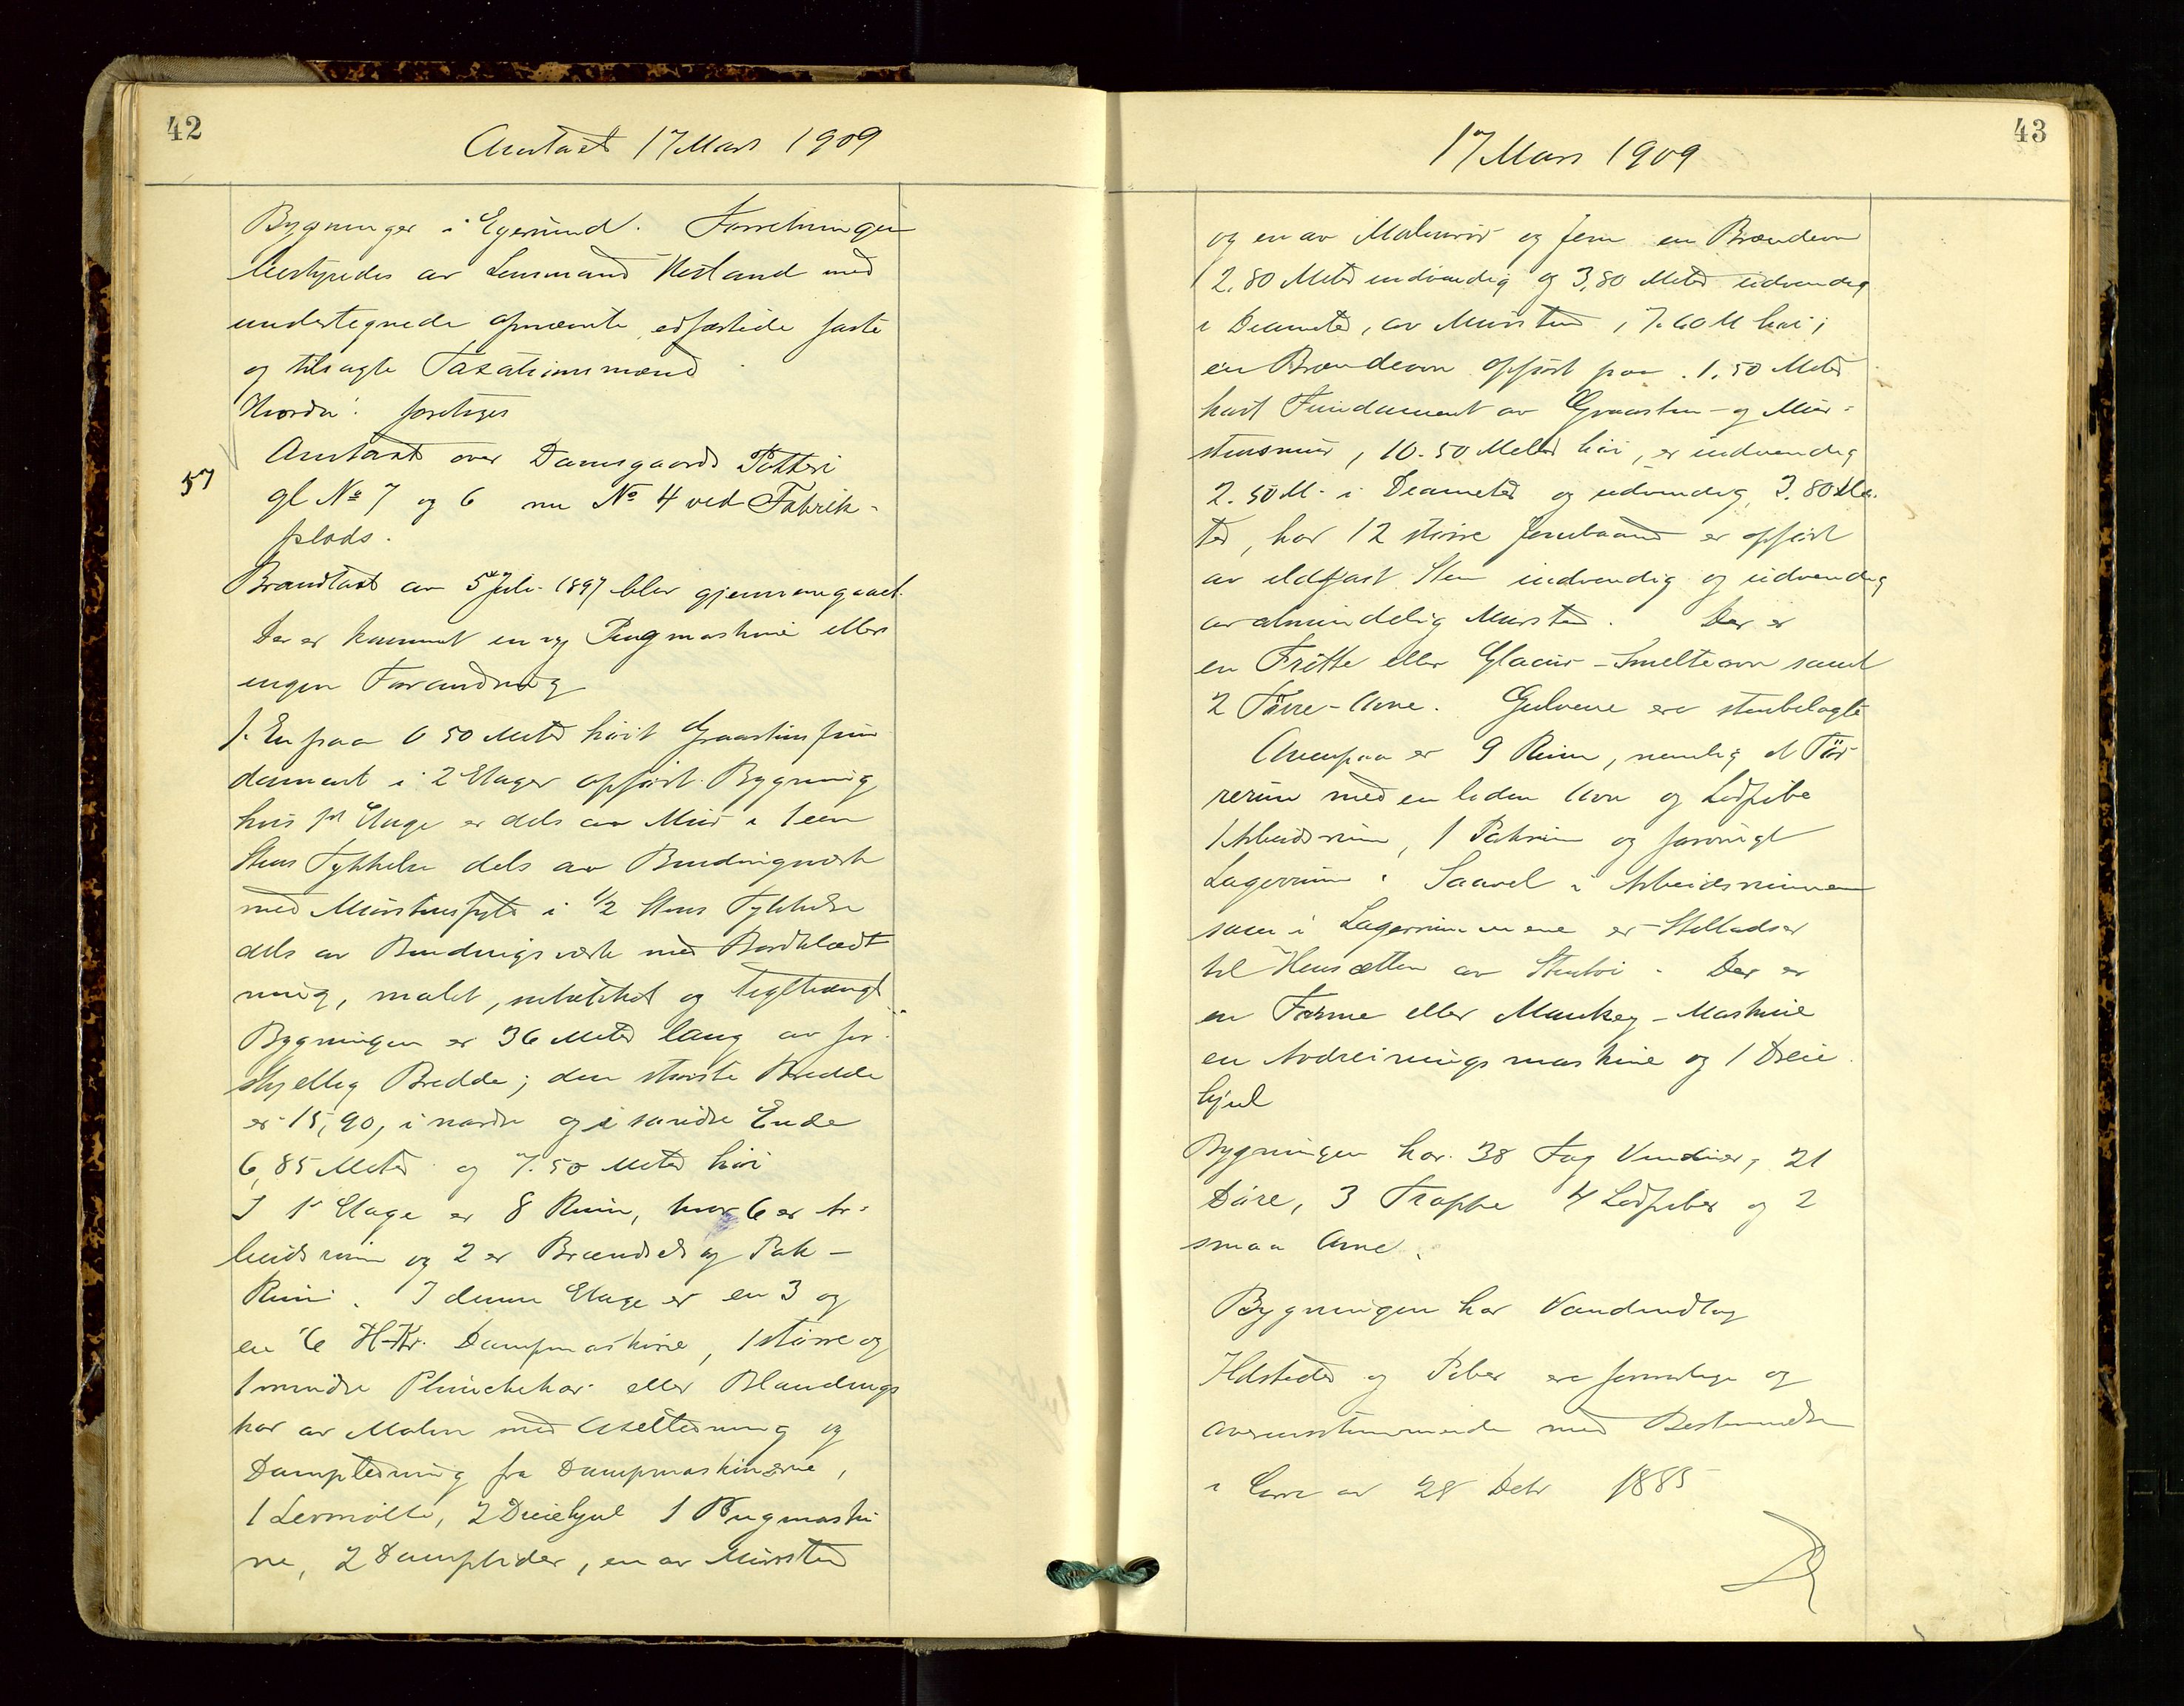 42
Omtaxt 17 Mars 1909
Bygninger i Egersund. Forretningen
bestyredes av Lensmand Hestand med
undertegnede opnævnte edfæstede faste
og tilsagte Taxationsmænd
Hvorda: foretoges
57
Omtaxt over Damsgaards Potteri
gl No 7 og 6 nu No 4 ved Fabrik-
plads.
Brandtaxt av 5te Juli 1897 blev gjennemgaaet.
Der er kommet en ny Pugmaskine ellers
ingen Forandring
1. En paa 0 50 Meter höit Graastensfun
dament i 2 Etager opført Bygning
hvis 1st Etage er dels av Mur i 1 een
Stens Tykkelse dels av Bindingsverk
med Murstensfyld i 1/2 Stens Tykkelse
dels av Bindingsverk med Bordklæd
ning, malet, og Teglhængt
Bygningen er 36 Meter lang av for-
skjellig Bredde; den største Bredde
er 15,90, i nordre og i søndre Ende
6,85 Meter og 7.50 Meter høi
I 1st Etage er 8 Rum, hvor 6 er Ar-
beidsrum og 2 er Brændsels og Pak-
Rum. I denne Etage er en 3 og
en 6 H-Kr. Dampmaskine, 1 større og
1 mindre Plunchekar eller Blandings
kar av Malm med Axelledning og
Dampledning fra Dampmaskinerne,
1 Lermølle, 2 Dreiehjul 1 Pugmaski
ne, 2 Dampkider, en av Mursten
43
17 Mars 1909
og en av Malmrør og Jern en Brændeovn
2,80 Meter indvendig og 3,80 Meter udvendig
i Diameter, av Mursten, 7.60 M høi;
en Brændeovn opført paa 1,50 Meter
høit Fundament av Graasten- og Mur-
stensmur, 10.50 Meter høi, er indvendig
2.50 M. i Diameter og udvendig 3.80 Me-
ter, har 12 større Jernbaand er opført
av ildfast Sten indvendig og udvendig
av almindelig Mursten. Der er
en Fritte eller Glacur-Smelteovn samt
2 Törre-Ovne. Gulvene ere stenbelagte
Ovenpaa er 9 Rum, nemlig et Tör-
rerum med en liden Ovn og Lodpibe
1 Arbeidsrum, 1 Pakrum og forøvrigt
Lagerrum. Saavel i Arbeidsrummene
som i Lagerrummene er Stilladser
til Hensætten av Stentøi. Der er
en Forme eller Munkey-Maskine
en Avdreiningsmaskine og 1 Dreie
hjul
Bygningen har 38 Fag Vinduer, 21
Döre, 3 Trappe 4 Lodpiber og 2
smaa Ovne.
Bygningen har Vandindlæg
Ildsteder og Piber ere forsvarlige og
overensstemmende med Bestemmelse
i Circ av 28 Debr 1885